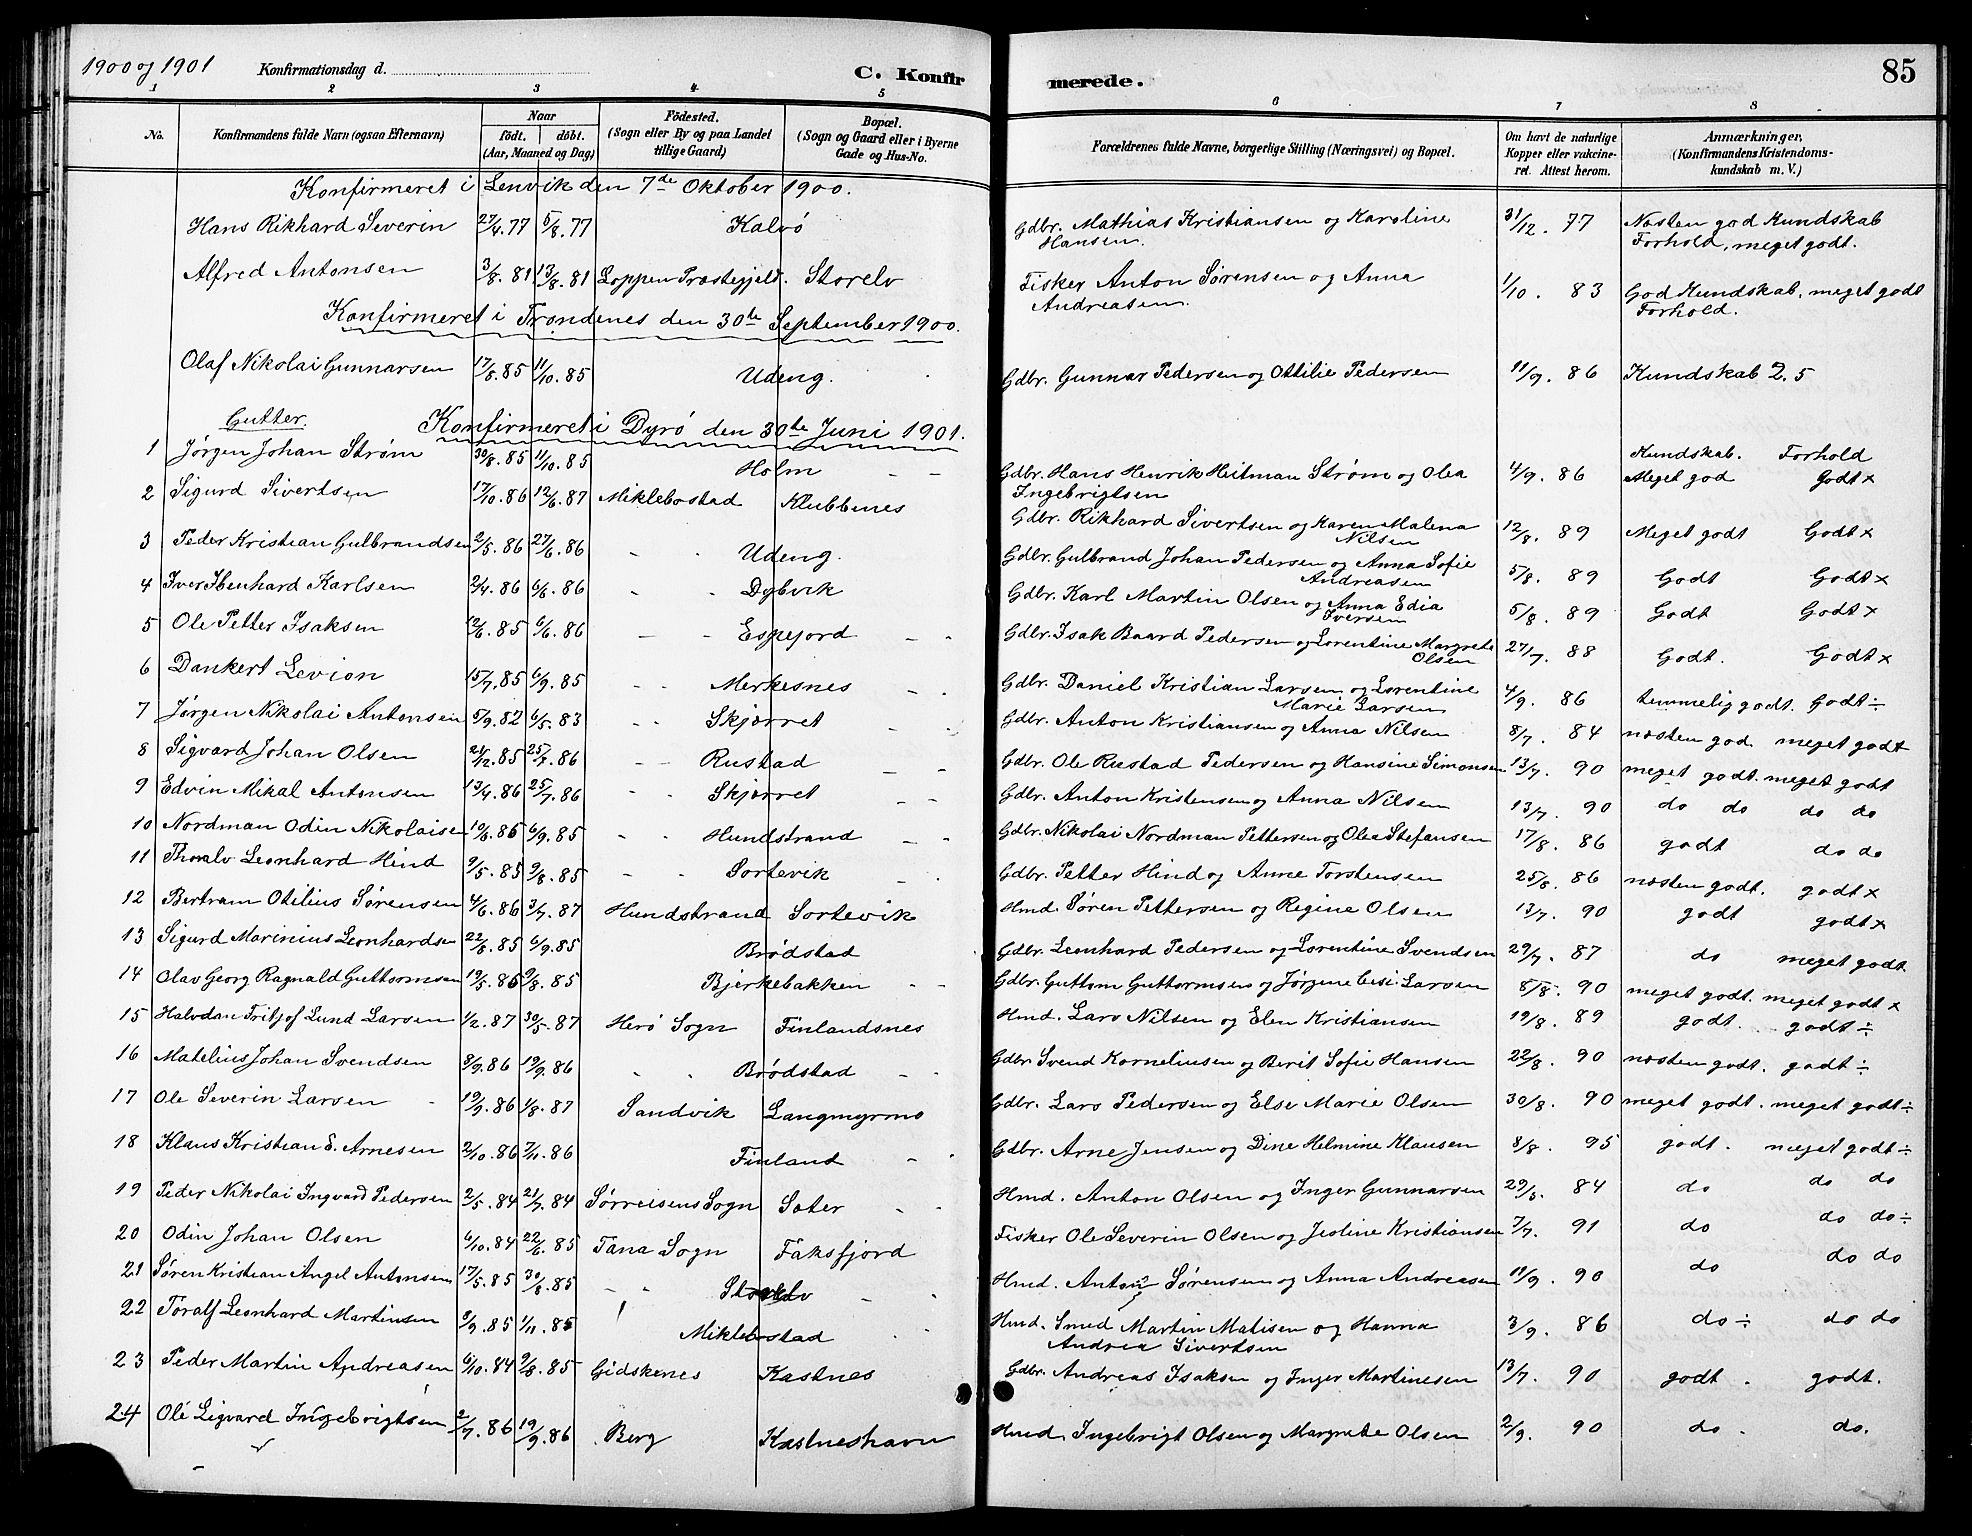 1900 og 1901 Konfirmationsdag d. C. Konfirmerede. 85
1 2 3 4 5 6 7 8
No. Konfirmandens fulde Navn (ogsaa Efternavn) Naar födt. döbt. (Aar, Maaned og Dag) Födested. (Sogn eller By og paa Landet tillige Gaard) Bopæl. (Sogn og Gaard eller i Byerne Gade og Hus-No. Forældrenes fulde Navne, borgerlige Stilling (Næringsvei) og Bopæl. Om havt de naturlige Kopper eller vakcineret. Attest herom. Anmærkninger, (Konfirmandens Kristendomskundskab m. V.)
Konfirmeret i Lenvik den 7de Oktober 1900.
Hans Rikhard Severin 27/4.77 5/8.77 Kalvö Gdbr. Mathias Kristiansen og Karoline Hansen. 31/12. 77 Næsten god Kundskab Forhold, meget godt.
Alfred Antonsen 3/8.81 13/8.81 Loppen Præstegjeld. Storelv Fisker Anton Sørensen og Anna Andreasen. 1/10. 83 God Kundskab, meget godt Forhold.
Konfirmeret i Trondenes den 30te September 1900.
Olaf Nikolai Gunnarsen 17/8.85 11/10.85 Udeng. Gdbr. Gunnar Pedersen og Ottilie Pedersen 11/9. 86 Kundskab 2.5
Gutter. Konfirmeret i Dyrö den 30te Juni 1901.
Kundskab. Forhold
1 Jørgen Johan Strøm 30/8.85 11/10.85 Holm Gdbr. Hans Henrik Heitman Strøm og Olea Ingebrigtsen 4/9. 86 Meget god Godt x
2 Sigurd Sivertsen 17/10.86 12/6.87 Miklebostad Klubbenes Gdbr. Rikhard Sivertsen og Karen Malena Nilsen 12/8. 89 Meget godt Godt x
3 Peder Kristian Gulbrandsen 2/5.86 27/6.86 Udeng. Gdbr. Gulbrand Johan Pedersen og Anna Sofie Andreasen 5/8. 89 Godt Godt x
4 Iver Ibenhard Karlsen 2/4.86 6/6.86 Dybvik Gdbr. Karl Martin Olsen og Anna Edia Iversen 5/8. 89 Godt Godt x
5 Ole Petter Isaksen 12/6.85 6/6.86 Espejord Gdbr. Isak Baard Pedersen og Lorentine Margrete Olsen 27/7. 88 Godt. Godt x
6 Dankert Levion 15/7.85 6/9.85 Merkesnes Gdbr. Daniel Kristian Larsen og Lorentine Marie Larsen 4/9. 86 temmelig godt. Godt ÷
7 Jørgen Nikolai Antonsen 5/9.82 6/5.83 Skjærret Gdbr. Anton Kristiansen og Anna Nilsen 8/7. 84 næsten god. meget godt
8 Sigvard Johan Olsen 24/12.85 25/7.86 Rustad Gdbr. Ole Rustad Pedersen og Hansine Simonsen 13/7. 90 meget godt. meget godt
9 Edvin Mikal Antonsen 13/4.86 25/7.86 Skjærret Gdbr. Anton Kristensen og Anna Nilsen 13/7. 90 do do do do
10 Nordman Odin Nikolaisen 19/6.85 6/9.85 Hundstrand Gdbr. Nikolai Nordman Pettersen og Olea Stefansen 17/8. 86 godt do do
11 Thoralv Leonhard Hind 9/5.85 9/8.85 Sortevik Gdbr. Petter Hind og Anne Torstensen 25/8. 86 næsten godt. godt x
12 Bertram Otilius Sørensen 4/6.86 3/7.87 Hundstrand Sortevik Hmd. Søren Pettersen og Regine Olsen 13/7. 90 godt godt x
13 Sigurd Marinius Leonhardsen 22/8.85 6/9.85 Brödstad Gdbr. Leonhard Pedersen og Lorentine Svendsen 29/7. 87 do meget godt
14 Olav Georg Ragnald Guttormsen 19/5.85 9/8.85 Bjerkebakken Gdbr. Guttorm Guttormsen og Jørgine Larsen 8/8. 90 meget godt. meget godt x
15 Halvdan Fritjof Lund Larsen 1/2.87 30/5.87 Herö Sogn Finlandsnes Hmd. Lars Nilsen og Elen Kristiansen 19/8. 89 godt. godt ÷
16 Matelius Johan Svendsen 8/9.86 19/9.86 Brödstad Gdbr Svend Kornelinsen og Berit Sofie Hansen 22/8. 90 næsten godt. godt ÷
17 Ole Severin Larsen 19/9.86 1/8.87 Sandvik Langmyrmo Gdbr. Lars Pedersen og Else Marie Olsen 30/8. 90 meget godt. meget godt ÷
18 Klaus Kristian E. Arnesen 2/10.86 7/11.86 Finland Gdbr. Arne Jensen og Dine Helmine Klausen 8/8. 95 godt. meget godt ÷
19 Peder Nikolai Ingvard Pedersen 2/5.84 21/7.84 Sørreisens Sogn Sæter Hmd. Anton Olsen og Inger Gunnarsen 29/8. 84 do do do
20 Odin Johan Olsen 6/10.84 22/6.85 Tana Sogn Faksfjord Fisker Ole Severin Olsen og Jestine Kristiansen 7/7. 91 do do do ÷
21 Søren Kristian Angel Antonsen 17/5.85 30/8.85 Storelv Hmd. Anton Sørensen og Anna Andreasen 11/9. 90 do do do
22 Toralf Leonhard Martinsen 8/9.85 1/11.85 Miklebostad Hmd. Smed Martin Matisen og Hanna Andrea Sivertsen 3/9. 86 do ÷ do do
23 Peder Martin Andreasen 6/10.84 9/8.85 Gidskenes Kastnes Gdbr. Andreas Isaksen og Inger Martinesen 13/7. 90 godt. godt.
24 Ole Sigvard Ingebrigtsen 2/7.86 19/9.86 Berg Kastneshavn Hmd. Ingebrigt Olsen og Margrete Olsen 2/9. 90 do. do.